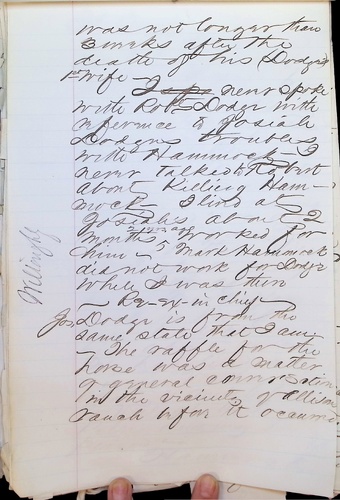 was not longer than
3 weeks after the
death of his Dodge's
1st wife — I never spoke
with Robt Dodge with
reference to Josiah
Dodges troubles
with Hammock — I
never talked to Robert
about Killing Ham-
mock I lived at
Josiah's about 2
months 2 yrs ago worked for
him — Mark Hammock
did not work for Dodge
while I was there
— Re-Ex-in chief —
Jos Dodge is from the
same state that I am
— The raffle for the
horse was a matter
of general conversation
in the vicinity of Allison
ranch before it occurred
Willoughby